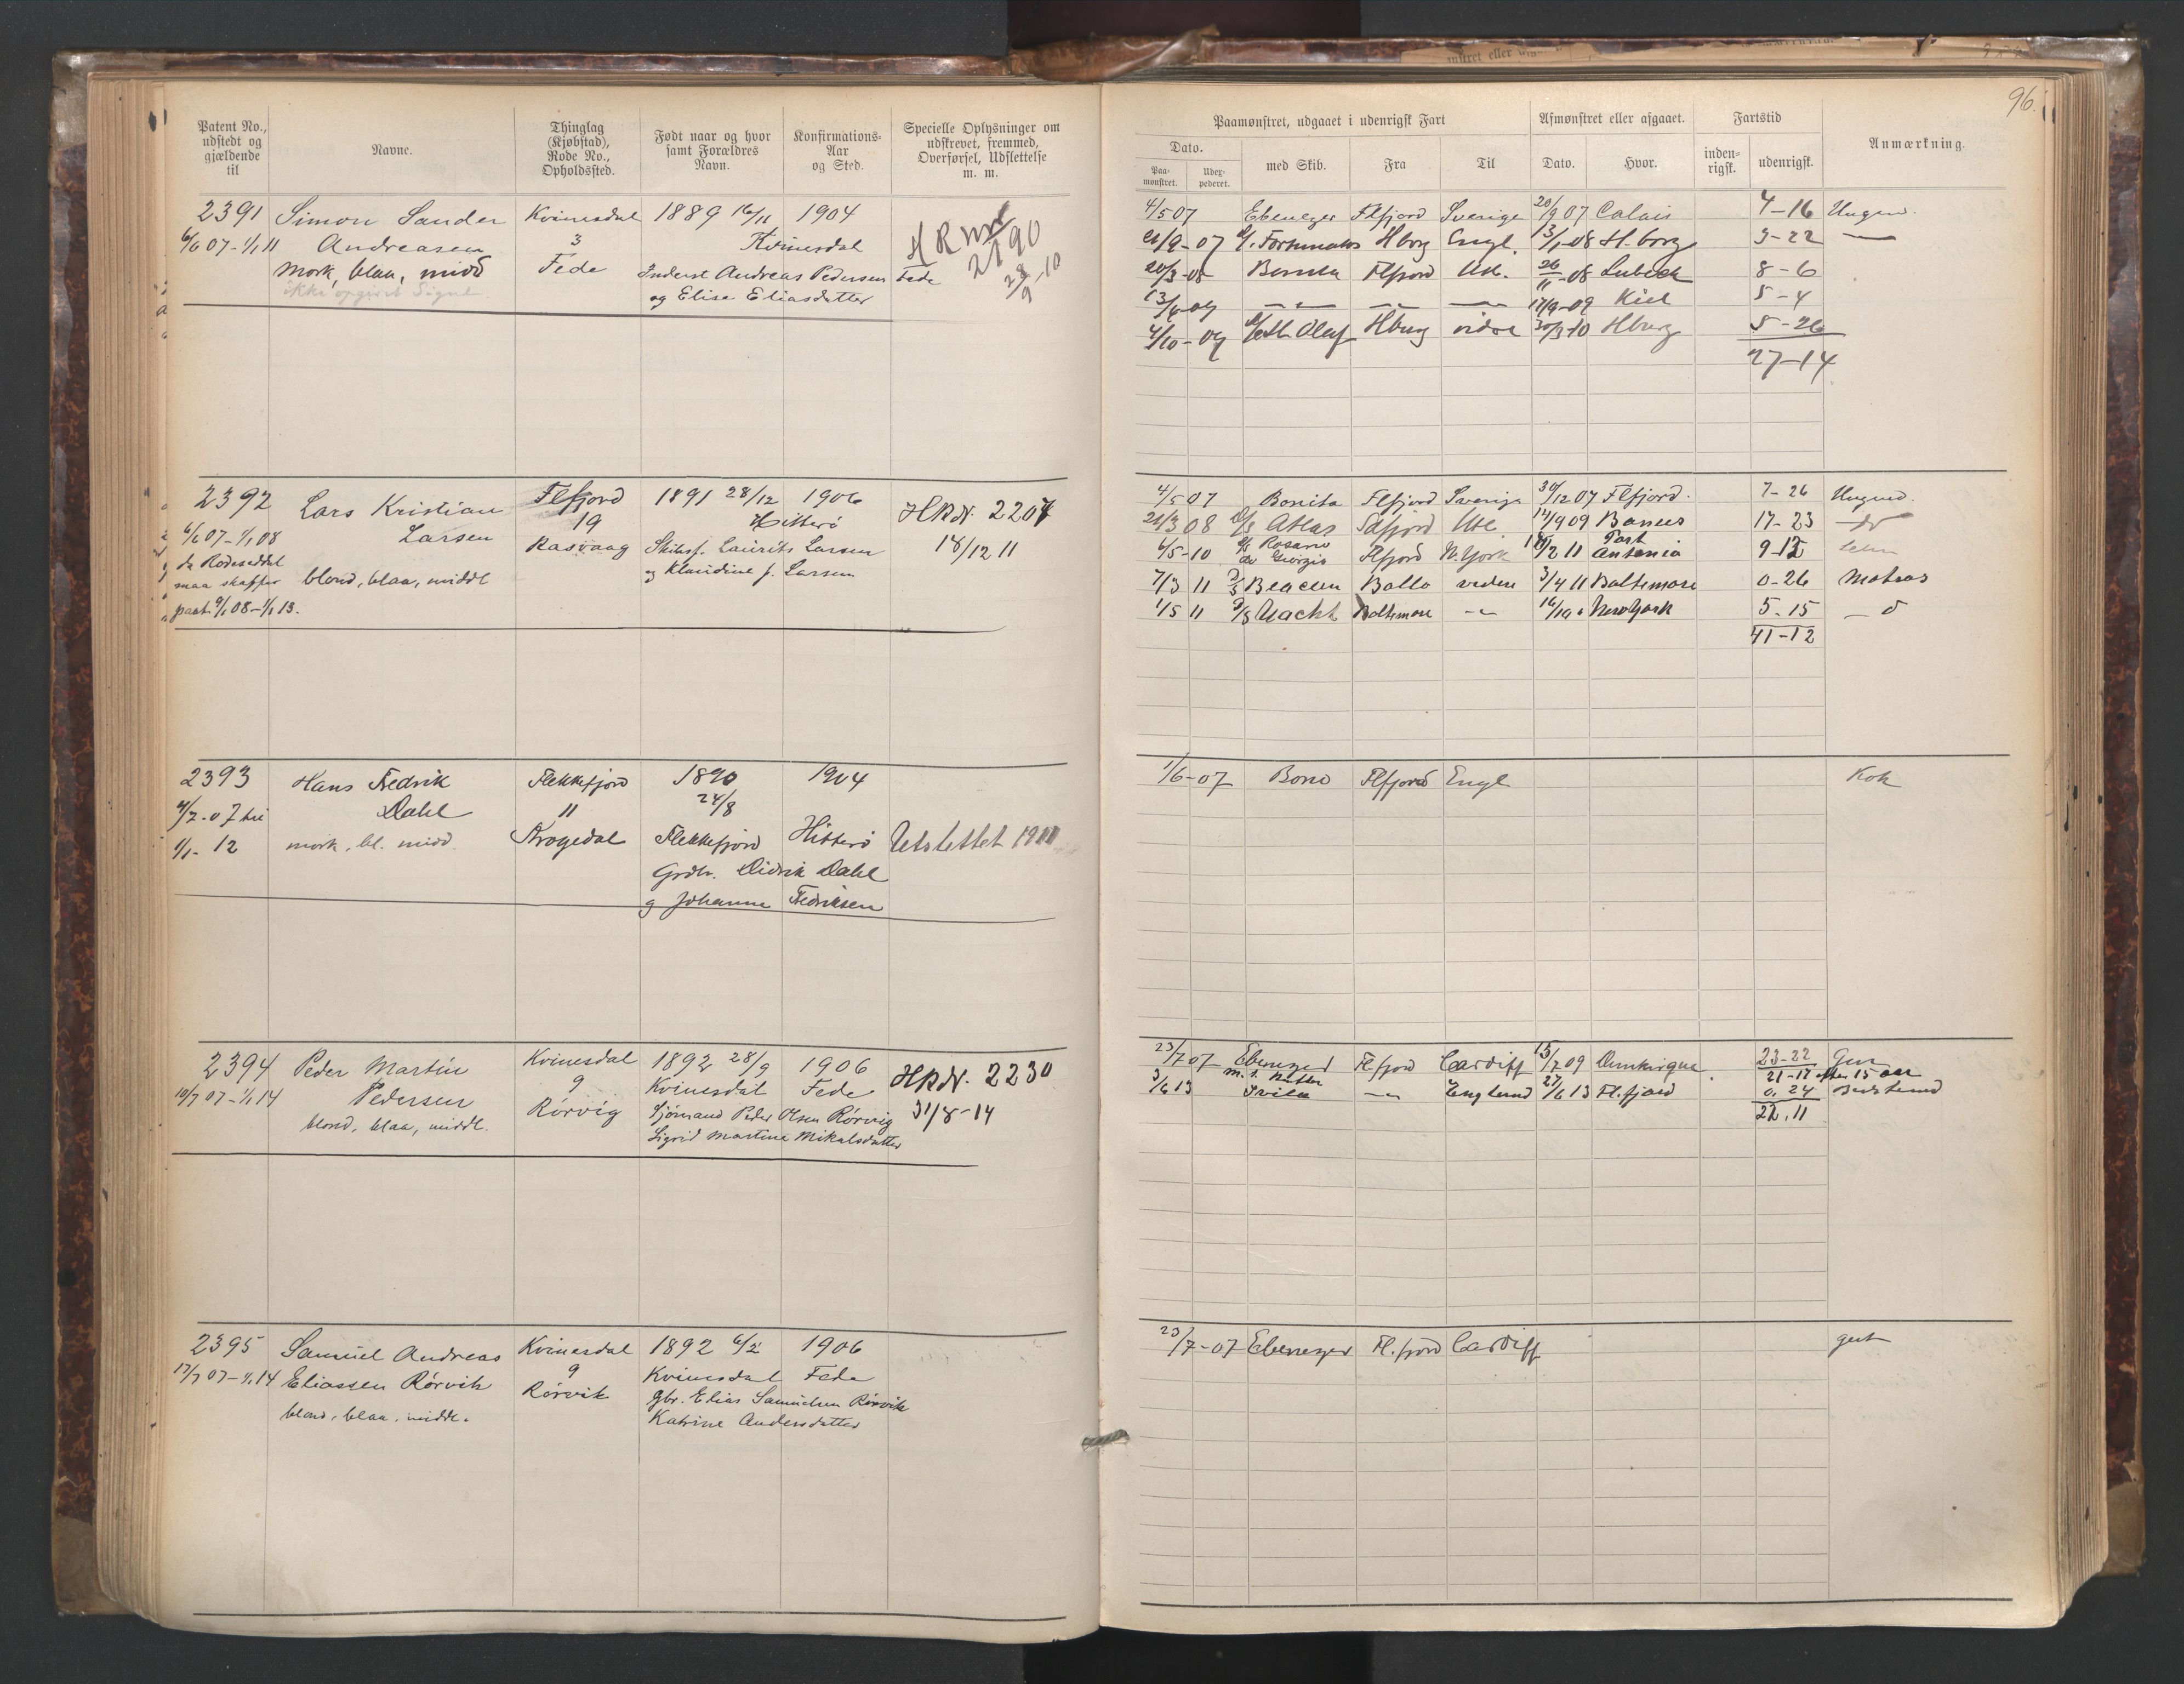 96.
Patent No., udstedt og gjældende til
Navne.
Thinglag (Kjøbstad), Rode No., Opholdssted.
Født naar og hvor samt Forældres Navn.
Konfirmations-Aar og Sted.
Specielle Oplysninger om udskrevet, fremmed, Overførsel, Udslettelse m. m.
Paamønstret, udgaaet i udenrigsk Fart
Afmønstret eller afgaaet.
Fartstid
Anmærkning.
Dato.
Paa-mønstret.
Udex-pederet.
med Skib.
Fra
Til
Dato.
Hvor.
inden-rigsk.
udenrigsk.
2391 Simon Sander Kvinesdal 1889 16/11 1904
6/6 07-1/1 11 Andreasen 3 Kvinesdal
mørk, blaa, midd Fede Inderst Andreas Pedersen Fede
ikke opgivet Signal og Elise Eliasdatter
2190
28/9-10
4/5 07 Ebenezer Flfjord Sverige 20/9 07 Calais 4-16 Ungm.
21/9-07 Fortunatus Hborg Engl. 13/1-08 H.borg 3-22 —
20/3-08 Bonita Flfjord Ust. 26/11-08 Lubeck 8-6
13/4-09 — — — 17/9-09 Kiel 5-4
4/10-09 Oluf Hburg vidre 30/3 10 Hburg 5-26
27-14
2392 Lars Kristian Flfjord 1891 28/12 1906 HRN. 2207
6/6 07-1/1 08 Larsen 19 Hitterø 18/12 11
da Rodeseddel Rasvaag Skibsf. Laurits Larsen
maa skaffes blond, blaa, middl og Klaudine f. Larsen
paat 9/1 08-1/1 13.
4/5 07 Bonita Flfjord Sverige 30/12 07 Flfjord. 7-26 Ungmd.
21/3 08 Atlas Flfjord Ust. 14/9 09 17-23 do
4/5-10 Rosario Flfjord N.York 2 11 Port Antonio 9-12
7/3 11 D/S Beacon Balto vidre 3/4 11 Baltimore 0-26 Matros
1/5 11 D/S Yacht Baltimore — 16/10 " New York 5-15 — d
41-12
2393 Hans Fredrik Flekkefjord 1890 1904
4/7-07 til Dahl 11 24/8
1/1-12 mørk, bl. midd. Trogedal Flekkefjord Hitterø Udslettet 1911
Grdbr. Didrik Dahl
og Johanne Fredriksen
1/6-07 Bono Flfjord Engl Kok
2394 Peder Martin Kvinesdal 1892 28/9 1906 HRN. 2230
10/7 07-1/1 14 Pedersen 9 Kvinesdal Fede 31/8-14
blond, blaa, middl. Rørvig Sjømand Peder Olsen Rørvig
Sigrid Martine Mikalsdatter
23/7 07 Ebenezer Flfjord Cardiff 15/7 09 Dunkirque. 23-22 Gut
21-17 efter 15 aar
3/6 13 Svila — England 27/6 13 Fl.fjord 0.24 Bedstemd
22.11
2395 Samuel Andreas Kvinesdal 1892 6/2 1906
17/7 07-1/1 14 Eliassen Rørvik 9 Kvinesdal Feda
blond, blaa, middl. Rørvik gbr. Elias Samuelsen Rørvik
Katrine Andersdatter
23/7-07 Ebenezer Fl.fjord Cardiff gut